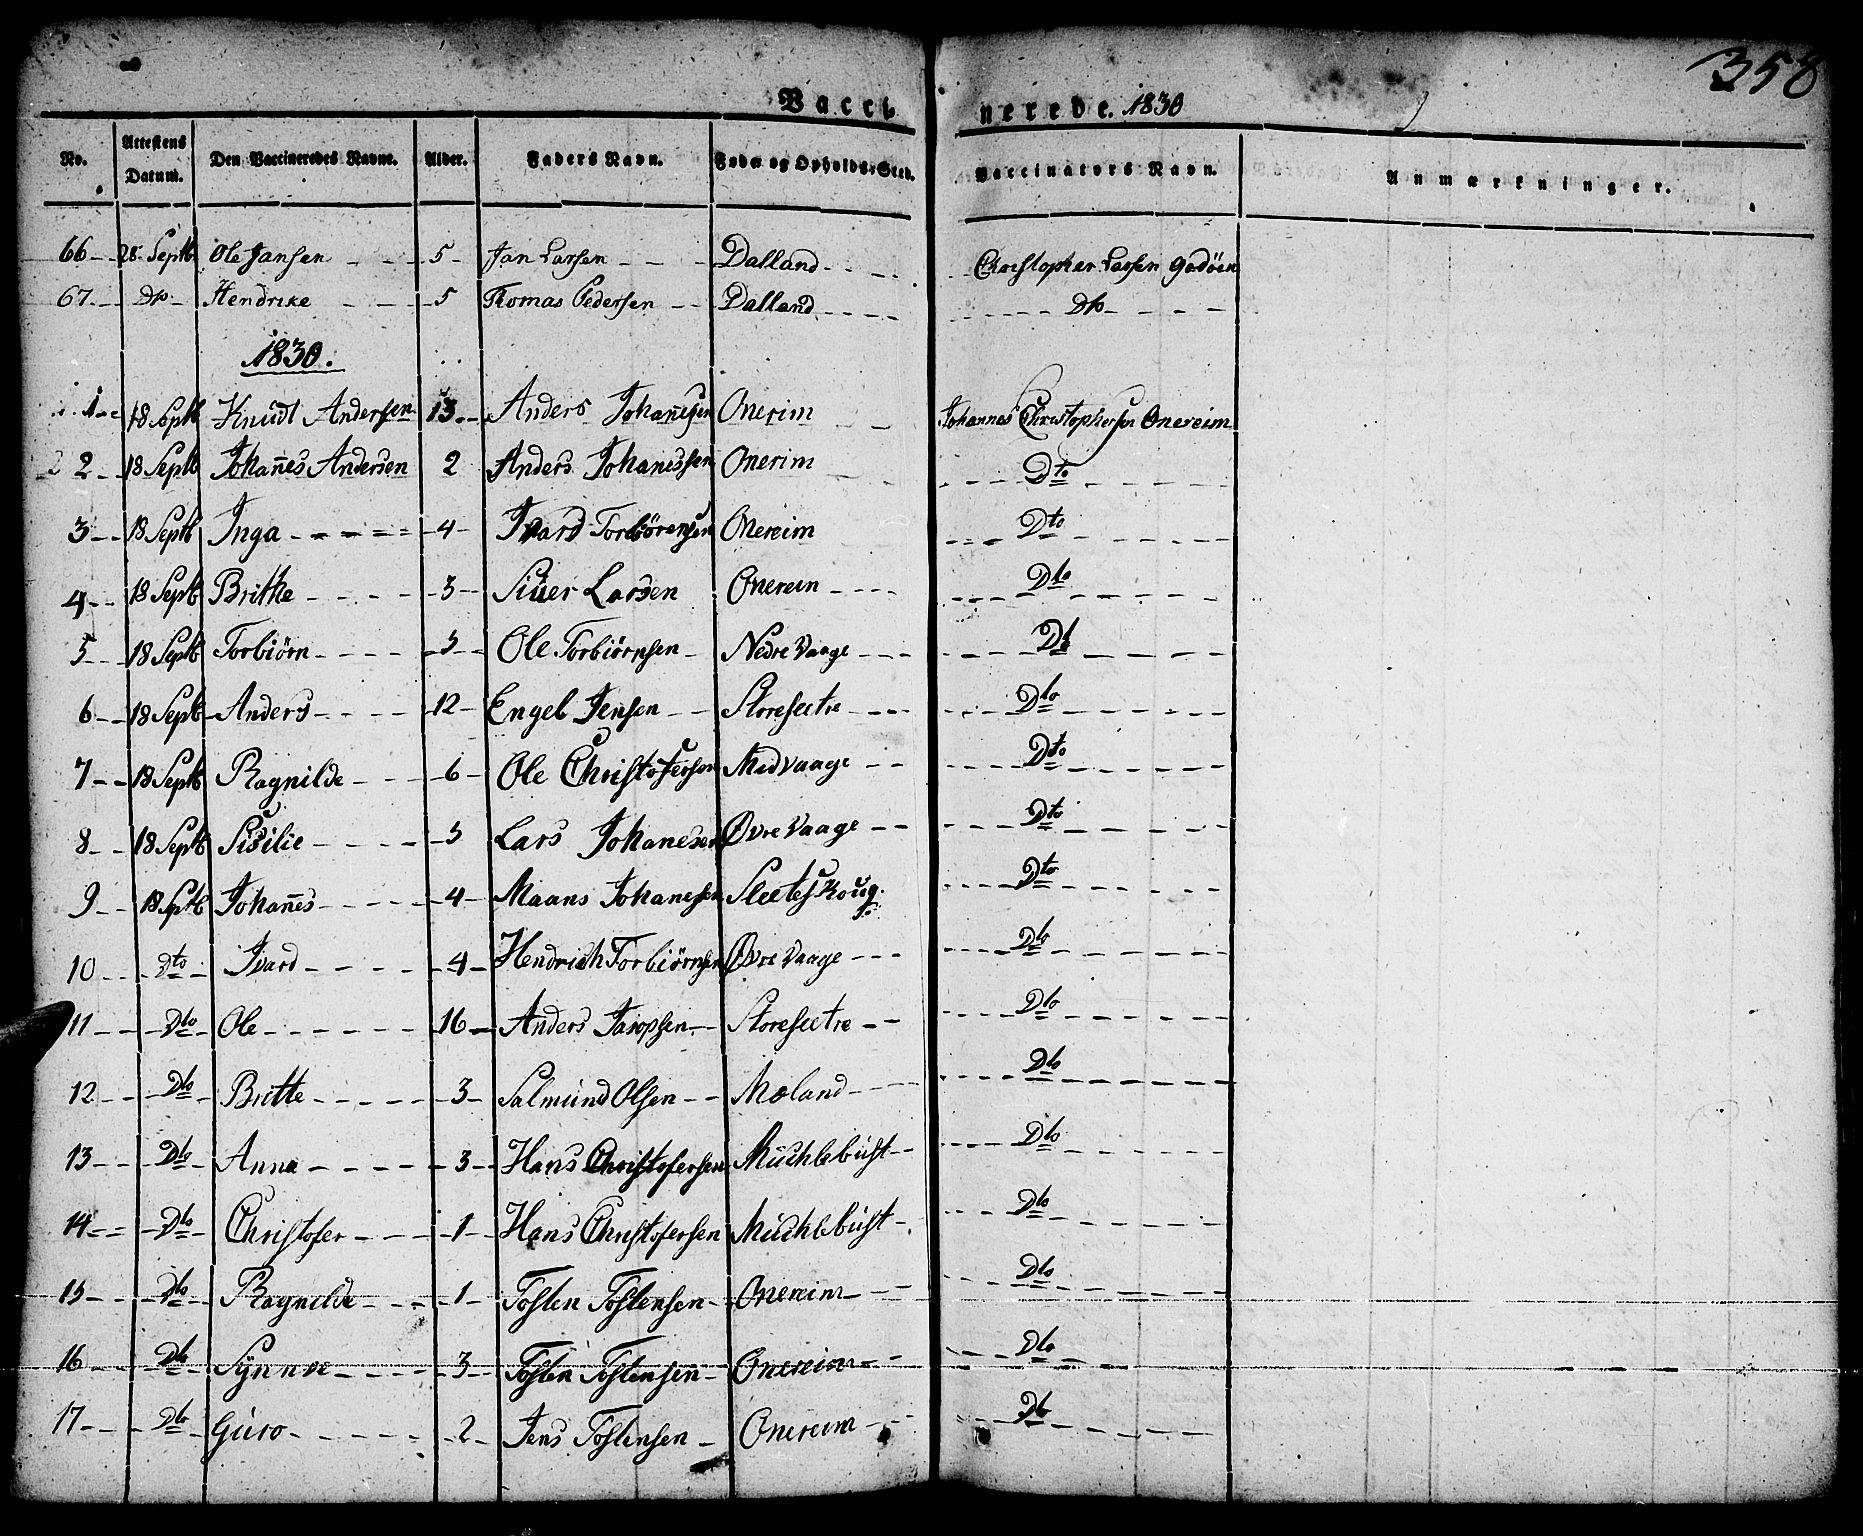 358
Vacci nerede. 1830
No. Attestens Datum. Den Vaccineredes Navne. Alder. Faders Navn. Føde og Opholds-Sted. Vaccinators Navn. Anmærkninger.
66 28 Septb Ole Jansen 5 Jan Larsen Dalland Christopher Larsen Godöen
67 Dto Hendrike 5 Thomas Pedersen Dalland Dto
1830.
1 18 Septb Knudt Andersen 13 Anders Johanesen Onerim Johannes Christophersen Onereim
2 18 Septb Johan̄es Andersen 2 Anders Johanessen Onerim Dto
3 18 Septb Inga 4 Ivard Torbiörensen Onereim Dto
4 18 Septb Brithe 3 Siüer Larsen Onerein Dto
5 18 Septb Torbiörn 5 Ole Torbiörnsen Nedre Vaage Dt
6 18 Septb Anders 12 Engel Jensen Storesectre Dto
7 18 Septb Ragnilde 6 Ole Christofersen Medvaage Dto
8 18 Septb Sisilie 5 Lars Johanesen Øvre Vaage Dto
9 18 Sptb Johan̄es 4 Maans Johanesen Dto
10 Dto Ivard 4 Hendrich Torbiörnsen Øvre Vaage Dto
11 Dto Ole 16 Anders Jacopsen Storesectre Dto
12 Dto Britte 3 Salmünd Olsen Moland Dto
13 Dto Anna 3 Hans Christofersen Müchlebüst Dto
14 Dto Christofer 1 Hans Christofersen Müchlebüst Dto
15 Dto Ragnilde 1 Tosten Tostensen Onereim Dto
16 Dto Synnve 3 Tosten Tostensen Onereim Dto
17 Dto Güro 2 Jens Tostensen Onereim Dto